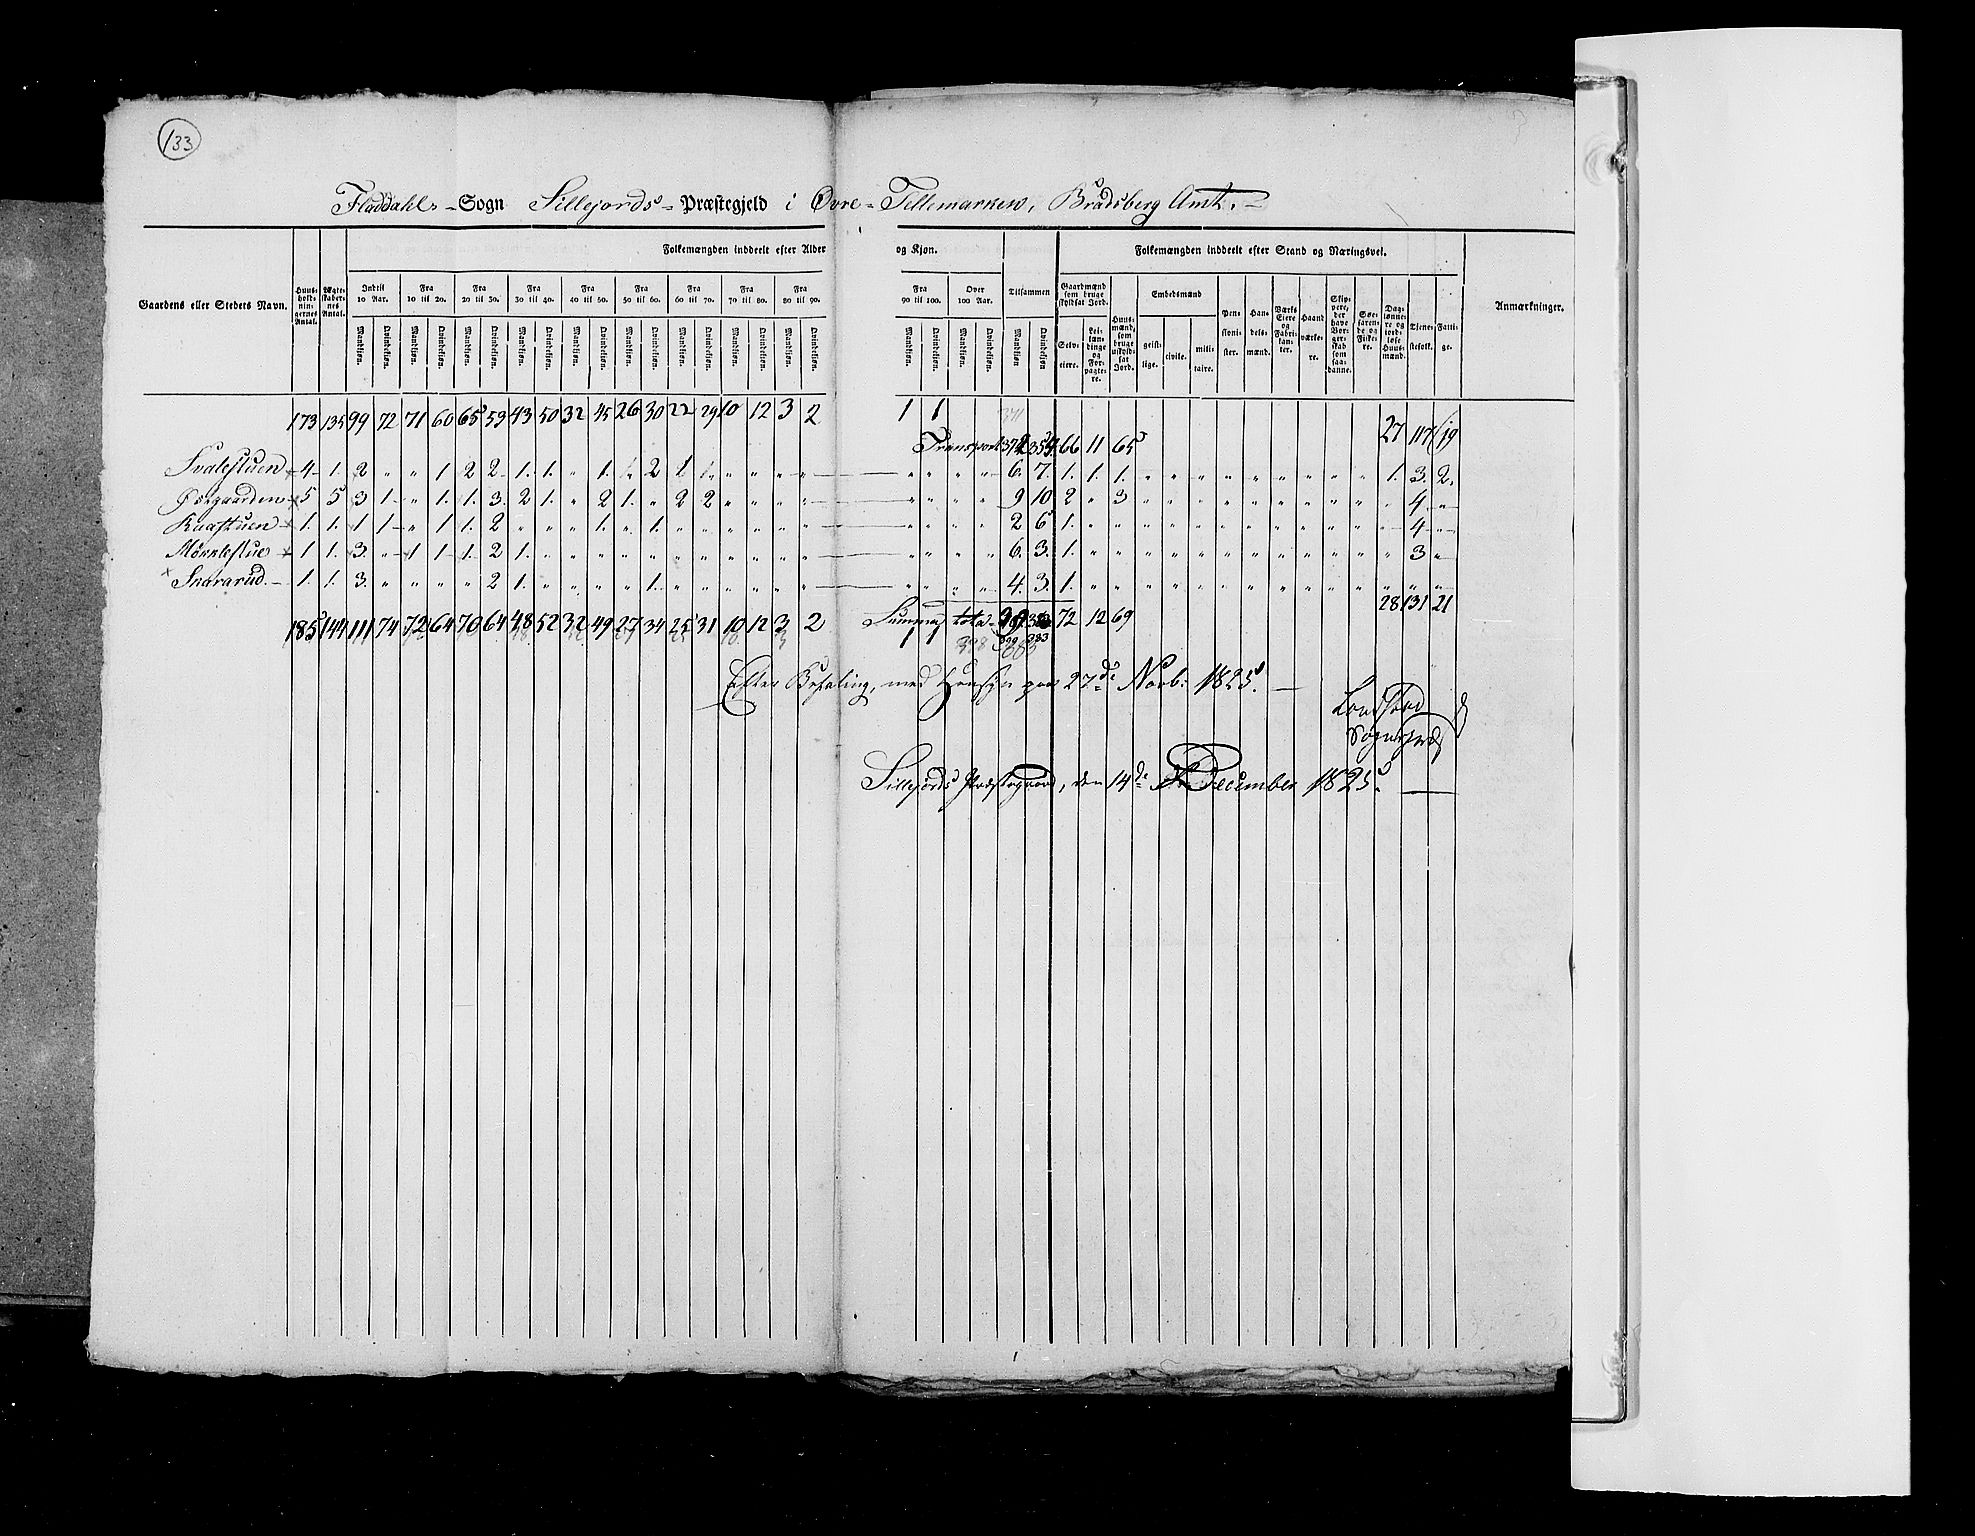 133
Fladdahls - Sogn Sillejords - Præstegjeld i Øvre - Tellemarken, Bradsberg Amt. -
Gaardens eller Stedets Navn. Huusholdningernes Antal. Ægteskabernes Antal. Folkemængden inddeelt efter Alder og Kjøn. Folkemængden inddeelt efter Stand og Næringsvei. Anmærkninger.
Indtil 10 Aar. Fra 10 til 20. Fra 20 til 30. Fra 30 til 40. Fra 40 til 50. Fra 50 til 60. Fra 60 til 70. Fra 70 til 80. Fra 80 til 90. Fra 90 til 100. Over 100 Aar. Tilsammen
Gaardmænd som bruge skyldsat Jord. Huusmænd, som bruge uskyldsat Jord. Embedsmænd Pensionister. Handelsmænd. Værks Eiere og Fabrikanter. Haandværkere. Skippere, der have Borgerskab som saadanne. Søefarende og Fiskere. Daglønnere og jordløse Huusmænd. Tjenestefolk. Fattige.
Selveiere. Leilændinge og Forpagtere. geistlige. civile. militaire.
Mandkjøn. Qvindekjøn. Mandkjøn. Qvindekjøn. Mandkjøn. Qvindekjøn. Mandkjøn. Qvindekjøn. Mandkjøn. Qvindekjøn. Mandkjøn. Qvindekjøn. Mandkjøn. Qvindekjøn. Mandkjøn. Qvindekjøn. Mandkjøn. Qvindekjøn. Mandkjøn. Qvindekjøn. Mandkjøn. Qvindekjøn. Mandkjøn Qvindekjøn
173 135 99 72 71 60 65 59 43 50 32 45 26 30 22 29 10 12 3 2 1 1 371
Transport 354 66 11 65 27 117 19
Svalestuen 4 1. 2 " " 1 2 2 1. 1. " 1. " 2 1 1. " " " " " " " " 6. 7. 1. 1. 1. " " " " " " " " " 1. 3. 2.
Øσrgaarden 5 5 3 1. " 1. 1. 3. 2 1. " 2 1. " 2 2 " " " " " " " " 9 10 2 " 3 " " " " " " " " " " 4 "
Kaastuen 1. 1. 1 1 " 1 1. 2 " " " 1. " 1. " " " " " " " " " " 2 6 1. " " " " " " " " " " " " 4 "
Mørklestue 1 1. 3. " 1 1 1. 2 1. " " " " " " " " " " " " " " " 6. 3. 1. " " " " " " " " " " " " 3 "
Snararud. 1. 1. 3. " " " " 2 1. " " " 1. " " " " " " " " " " " 4. 3. 1. " " " " " " " " " " " " " "
185 144 111 74 72 64 70 64 48 52 32 49 27 34 25 31 10 12 3 2 1 1 Summa total 72 12 69 28 131 21
398 399 383
Efter Befaling, med Hensyn paa 27de Novb: 1825. —
Landstad
Sognepræst
Sillejords Præstegaard, den 14de December 1825. —